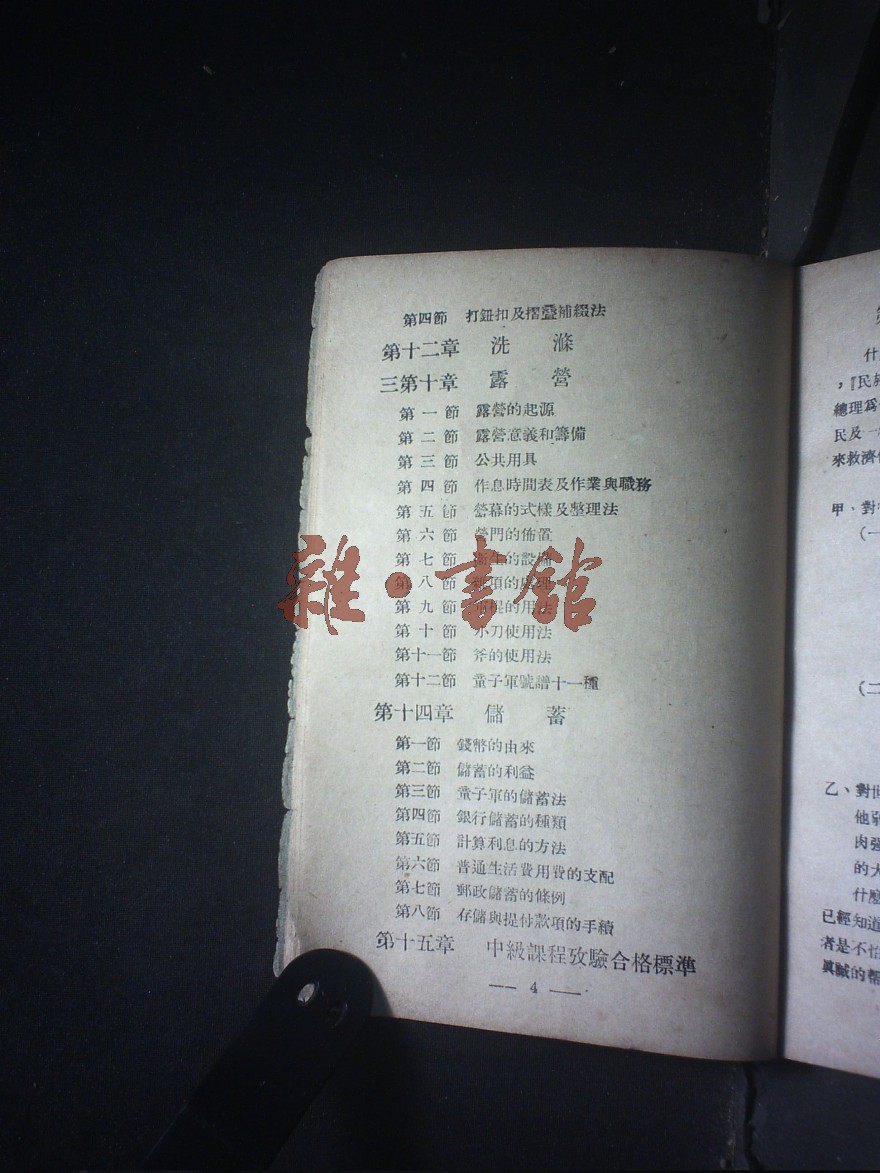 第四節 打鈕扣及摺疊補綴法
第十二章 洗 滌
三第十章 露 營
第一節 露營的起源
第二節 露營意義和籌備
第三節 公共用具
第四節 作息時間表及作業與職務
第五節 營幕的式樣及整理法
第六節 營門的佈置
第七節 衛生的設備
第八節 雜項的處理
第九節 的用法
第十節 小刀使用法
第十一節 斧的使用法
第十二節 童子軍號譜十一種
第十四章 儲 蓄
第一節 錢幣的由來
第二節 儲蓄的利益
第三節 童子軍的儲蓄法
第四節 銀行儲蓄的種類
第五節 計算利息的方法
第六節 普通生活費用費的支配
第七節 郵政儲蓄的條例
第八節 存儲與提付款項的手續
第十五章 中級課程攷驗合格標準
— 4 —
雜·書館
什
，『民
總理爲
民及一
來救濟
甲、對
（一
（二
乙、對世
他弱
肉強
的大
什麼
已經知道
者是不怕
眞賊的